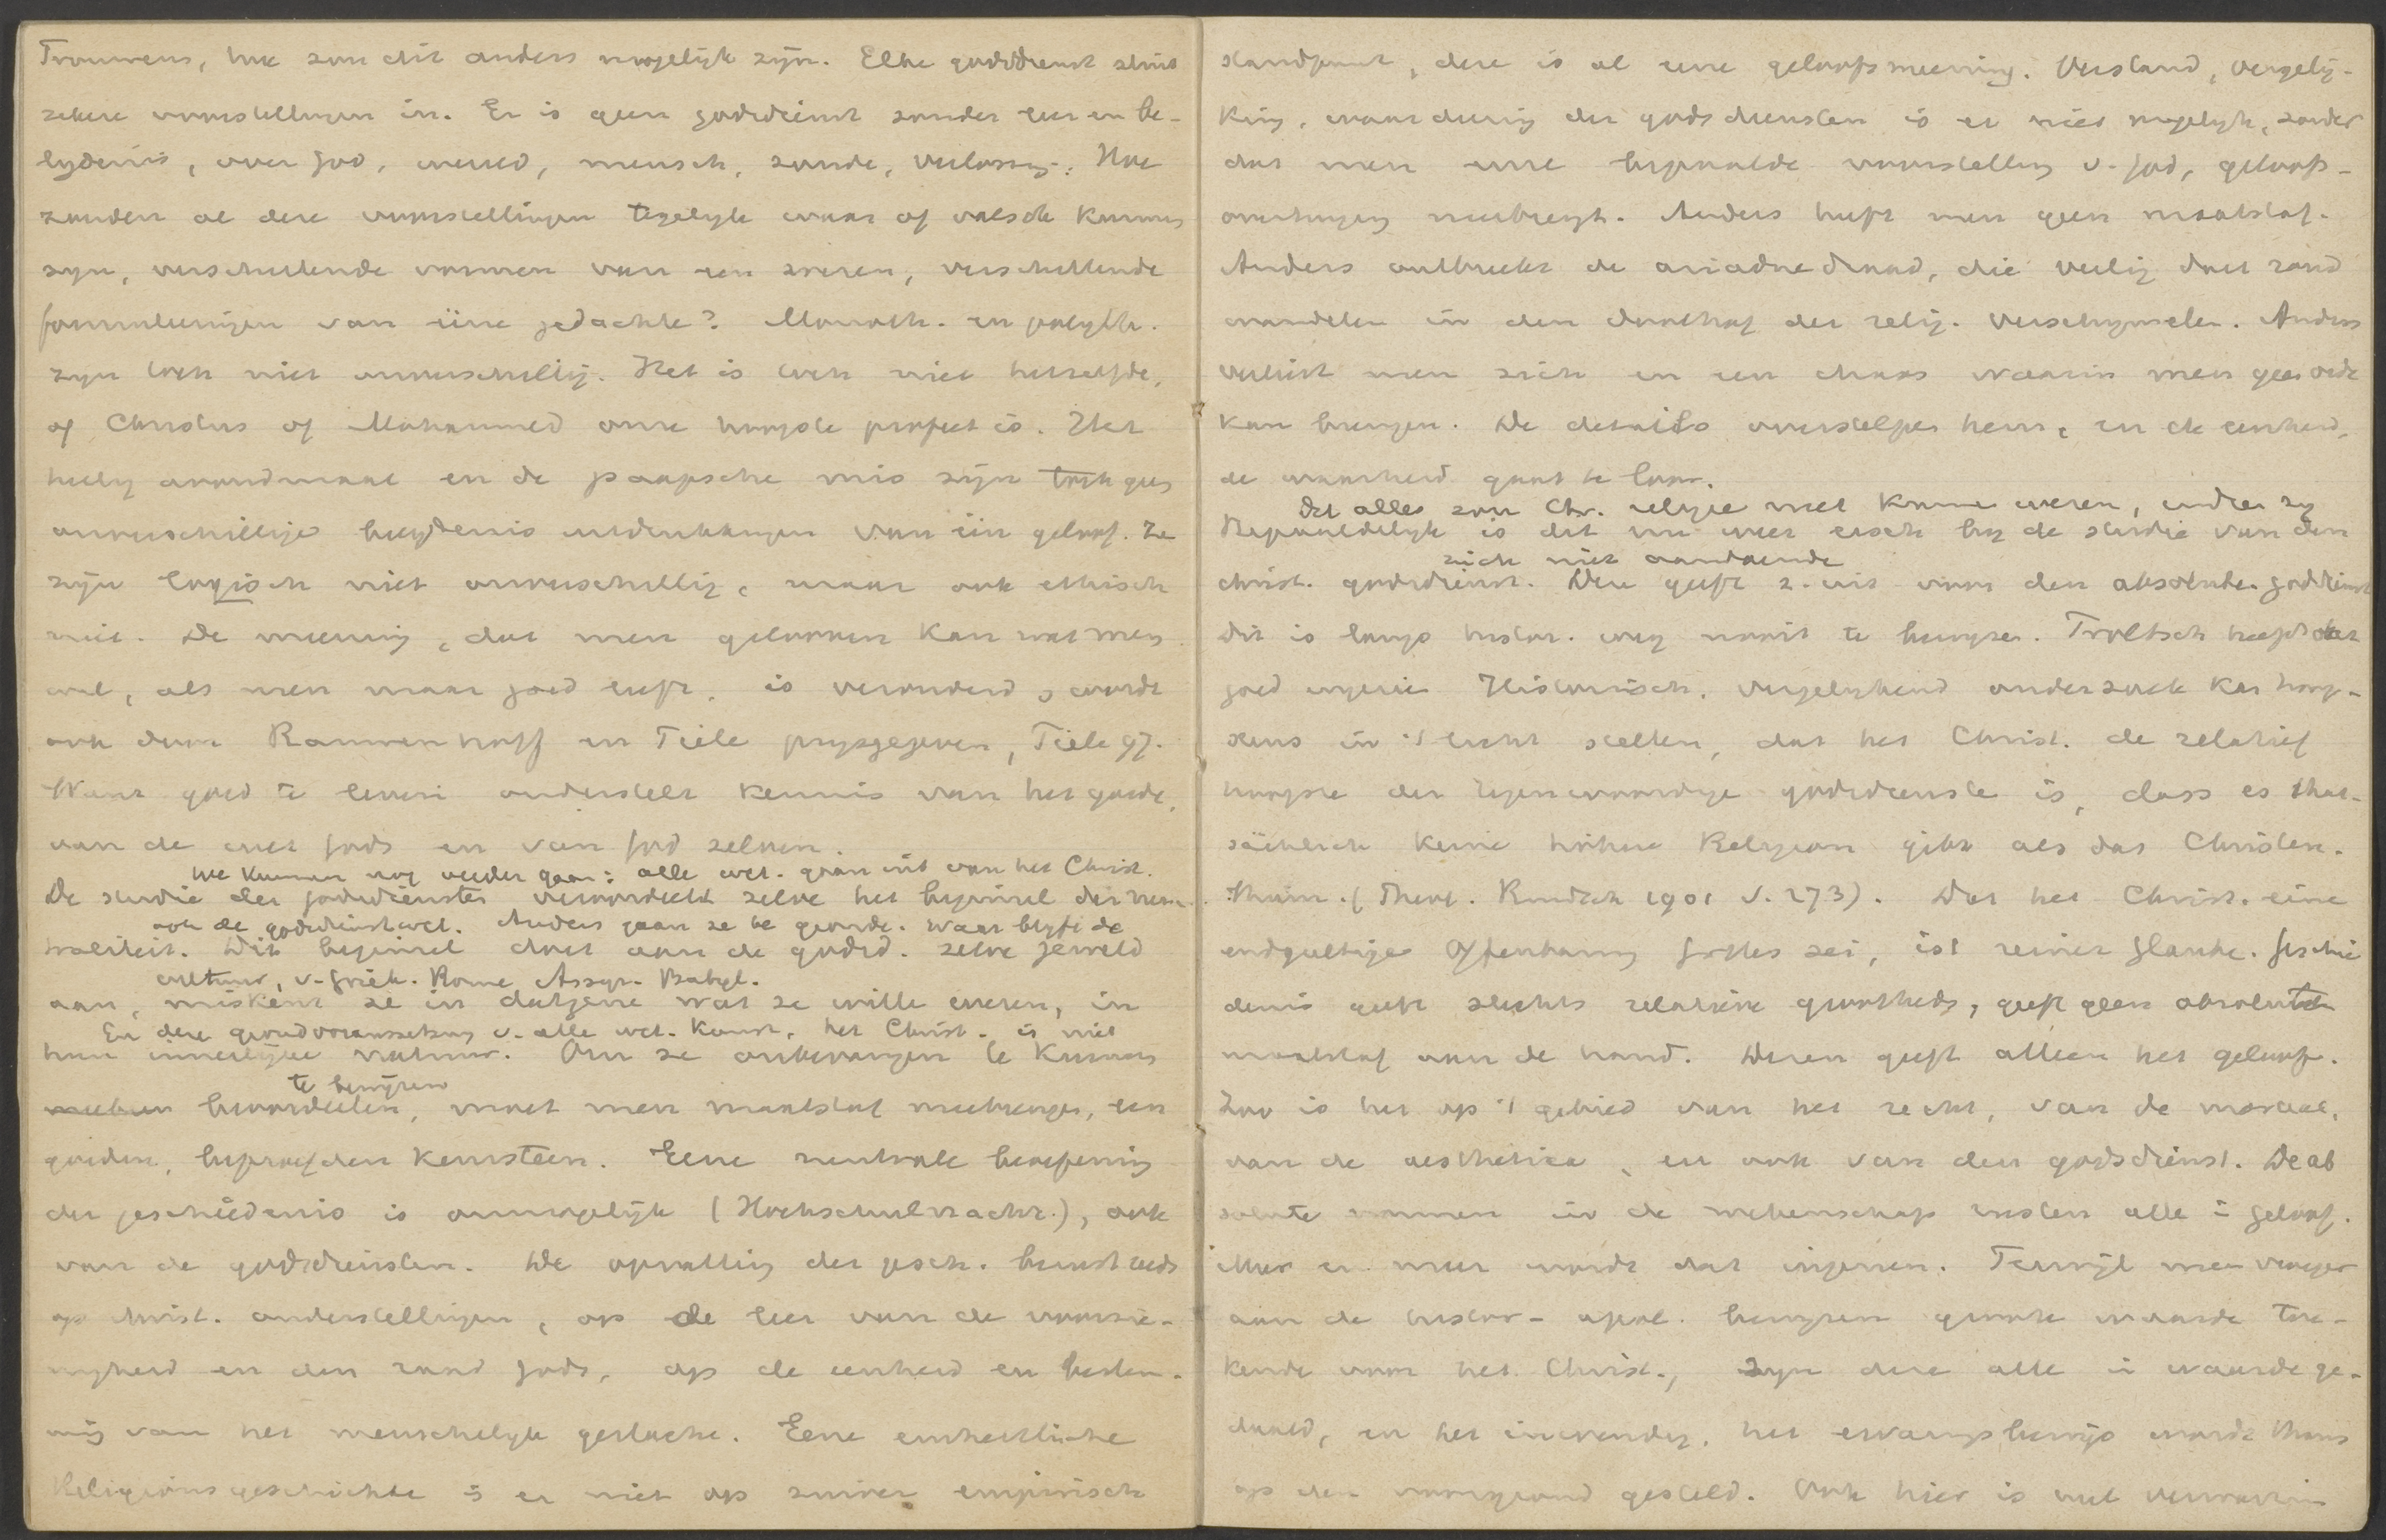 Trouwens, hoe zou dit anders mogelijk zijn. Elke godsdienst sluit
zekere voorstellingen in. Er is geen godsdienst zonder leer en be-
lijdenis, over God, wereld, mensch, zonde, verlossing. Hoe
zouden al deze voorstellingen tegelijk waar of valsch kunnen
zijn, verschillende vormen van een wezen, verschillende
formuleeringen van eene gedachte? Monoth. en polyth.
zijn toch niet onverschillig. Het is toch niet hetzelfde,
of Christus of Mohammed onze hoogste profeet is. Het
heilig avondmaal en de paapsche mis zijn toch geen
onverschillige belijdenis uitdrukkingen van één geloof. Ze
zijn logisch niet onverschillig, maar ook ethisch
niet. De meening, dat men gelooven kan wat men
wil, als men maar goed leeft, is verouderd, wordt
ook door Rauwenhoff en Tiele prijsgegeven, Tiele 97.
Want goed te leven onderstelt kennis van het goede,
van de wet Gods en van God zelven.
We kunnen nog verder gaan: alle wet. gaan uit van het Christ.
De studie der godsdiensten veroordeelt zelve het beginsel der neu-
ook de godsdienstwet. Anders gaan ze te gronde. Waar blijft de
traliteit. Dit beginsel doet aan de godsd. zelve geweld
cultuur, v. Griek. Rome Assyr. Babyl.
aan, miskent ze in datgene wat ze wille wezen, in
En deze grondvoraussetzung v. alle wet. Kunst, het Christ. is niet
hun innerlijke natuur. Om ze onbevangen te kunnen
te bewijzen
beoordeelen, moet men maatstaf meebrengen, een
gouden, beproefden kernsteen. Eene neutrale beoefening
der geschiedenis is onmogelijk (Hochschulnachr.), ook
van de godsdiensten. De opvatting der gesch. berust reeds
op christ. onderstellingen, op de leer van de voorzie-
nigheid en den raad Gods, op de eenheid en bestem-
ming van het menschelijk geslacht. Eene einheitliche
Religionsgeschichte is er niet op zuiver empirisch
standpunt, deze is al eene geloofsmeening. Verstand, vergelij-
king, waardeering der godsdiensten is er niet mogelijk, zonder
dat men eene bepaalde voorstelling v. God, geloofs-
overtuiging meebrengt. Anders heeft men geen maatstaf.
Anders ontbreekt de ariadne draad, die veilig doet rond
wandelen in den doolhof der relig. verschijnselen. Anders
verliest men zich in een chaos waarin men geen orde
kan brengen. De details overstelpen hem, en de eenheid,
de waarheid gaat te loor.
Dit alles zou Chr. religie niet kunne wezen, indien zij
Bepaaldelijk is dit nu weer eisch bij de studie van den
zich niet aandiende
christ. godsdienst. Deze geeft z. uit voor den absolute godsdienst
Dit is langs histor. weg nooit te bewijzen. Troeltsch heeft dat
goed ingezien Historisch, vergelijkend onderzoek kan hoog-
stens in 't licht stellen, dat het Christ. de relatief
hoogste der tegenwoordige godsdienste is, dass es that-
sächlich keine höhere Religion gibt als das Christen-
thum. (Theol. Rundsch 1901 S. 273). Dat het Christ. eine
endgültige Offenbarung Gottes sei, ist reiner Glaube. Geschie
denis geeft slechts relatieve grootheden, geeft geen absoluten
maatstaf aan de hand. Dezen geeft alleen het geloof.
Zoo is het op 't gebied van het recht, van de moraal,
van de aesthetica, en ook van den godsdienst. De ab
solute normen in de wetenschap rusten alle i geloof.
Meer en meer wordt dat ingezien. Terwijl men vroeger
aan de histor-apol. bewijzen groote waarde toe-
kende voor het Christ., zijn deze alle in waarde ge-
daald, en het inwendig, het ervaringsbewijs wordt thans
op den voorgrond gesteld. Ook hier is veel verwarring